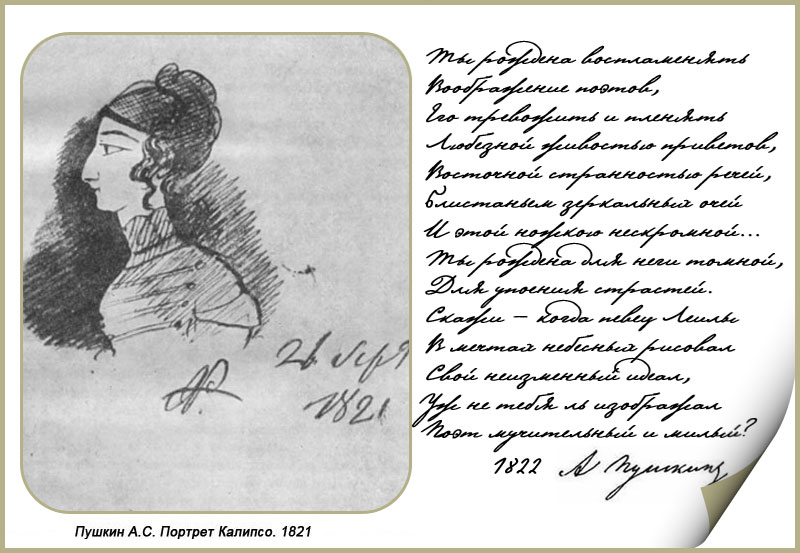 26
1821
Пушкин А.С. Портрет Калипсо. 1821
Ты рождена воспламенять
Воображение поэтов,
Его тревожить и пленять
Любезной живостью приветов,
Восточной странностью речей,
Блистаньем зеркальных очей
И этой ножкою нескромной...
Ты рождена для неги томной,
Для упоения страстей.
Скажи — когда певец Леилы
В мечтах небесных рисовал
Свой неизменный идеал,
Уж не тебя ль изображал
Поэт мучительный и милый?
1822 А Пушкинъ